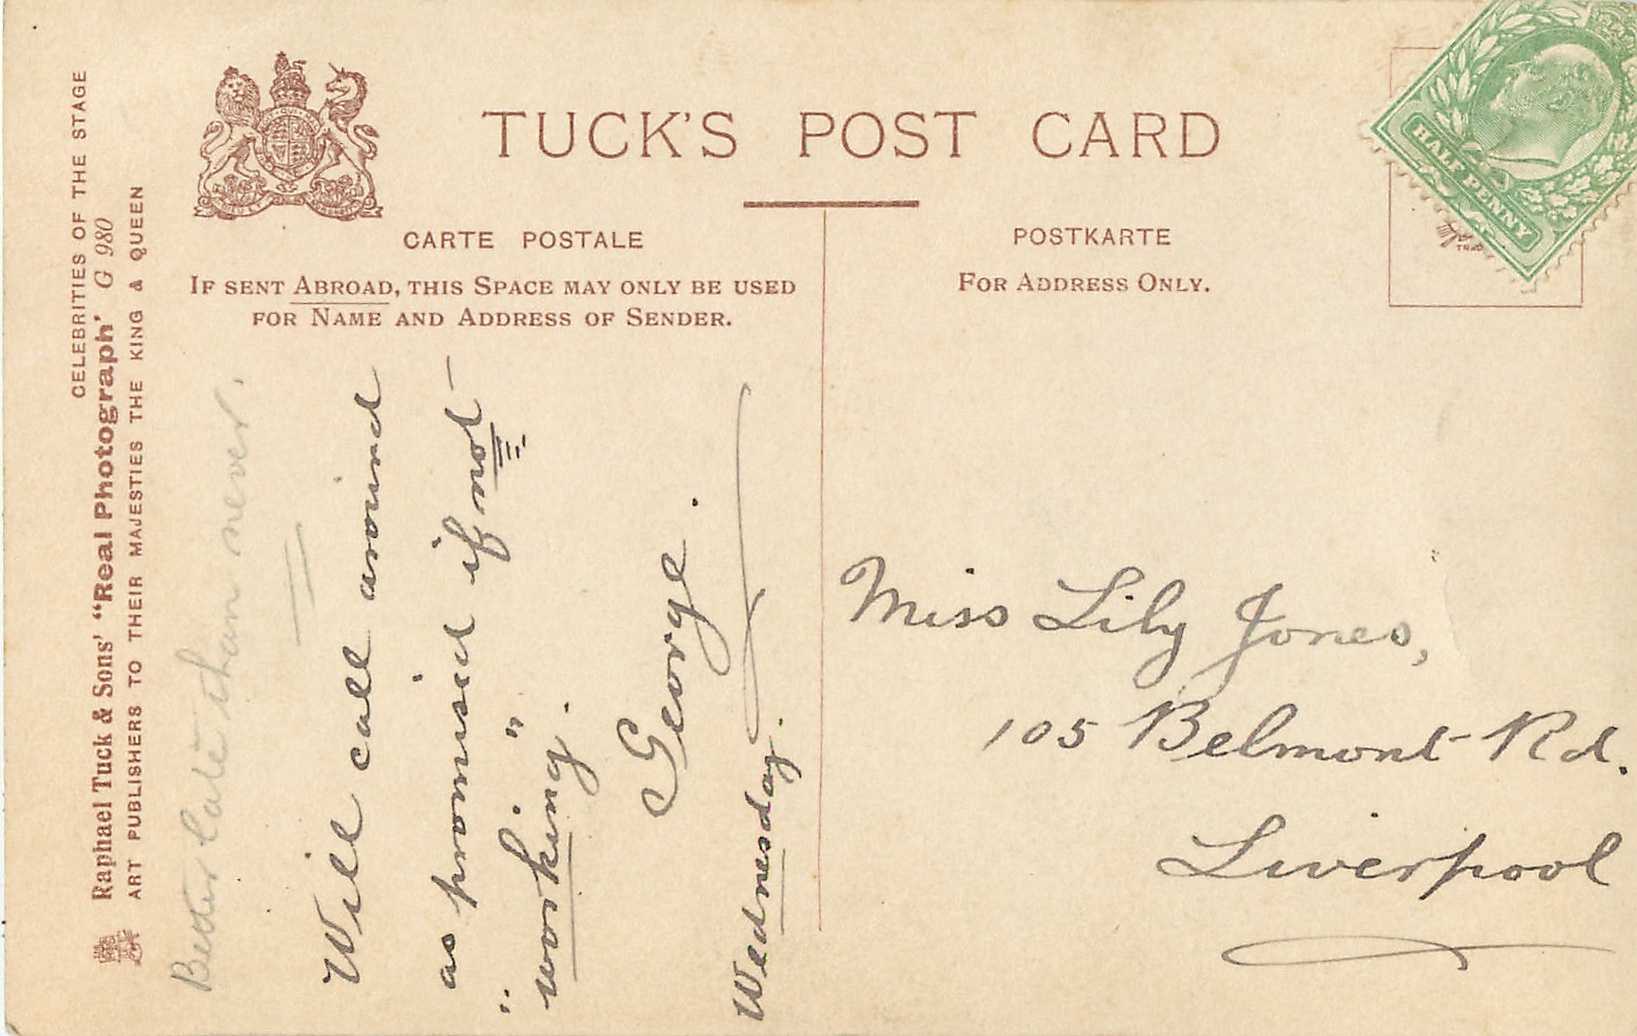 TUCK'S POST CARD
CARTE POSTALE
POSTKARTE
IF SENT ABROAD, THIS SPACE MAY ONLY BE USED
FOR NAME AND ADDRESS OF SENDER.
FOR ADDRESS ONLY.
HALF PENNY
CELEBRITIES OF THE STAGE
Raphael Tuck & Sons' "Real Photograph" G 980
ART PUBLISHERS TO THEIR MAJESTIES THE KING & QUEEN
Better late than never.
Will call around
as promised if not
"working."
George.
Wednesday.
Miss Lily Jones,
105 Belmont Rd.
Liverpool